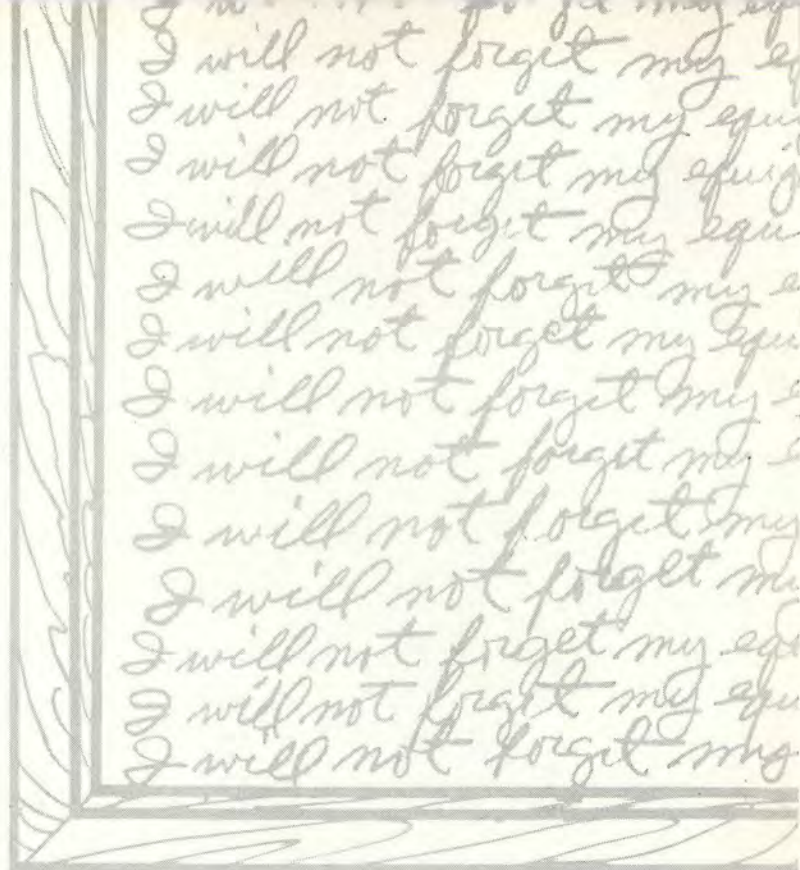 my
I will not forget my eq
I will not forget my equi
I will not forget my equip
I will not forget my equ
I will not forget my e
I will not forget my equ
I will not forget my e
I will not forget my e
I will not forget my
I will not forget my
I will not forget my equ
I will not forget my equ
I will not forget my